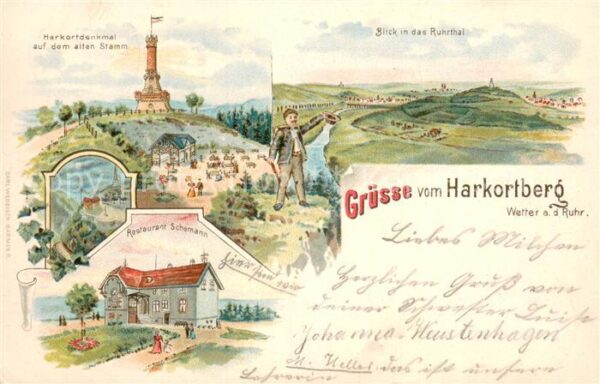 Harkortdenkmal
auf dem alten Stamm.
Blick in das Ruhrthal
Grüsse vom Harkortberg
Wetter a. d. Ruhr.
Restaurant Schemann
hier sind wir
Liebes Milchen
Herzlichen Gruß von
deiner Schwester Luise
Johanna Wustenhagen
M. Heller das ist unsere
Lehrerin